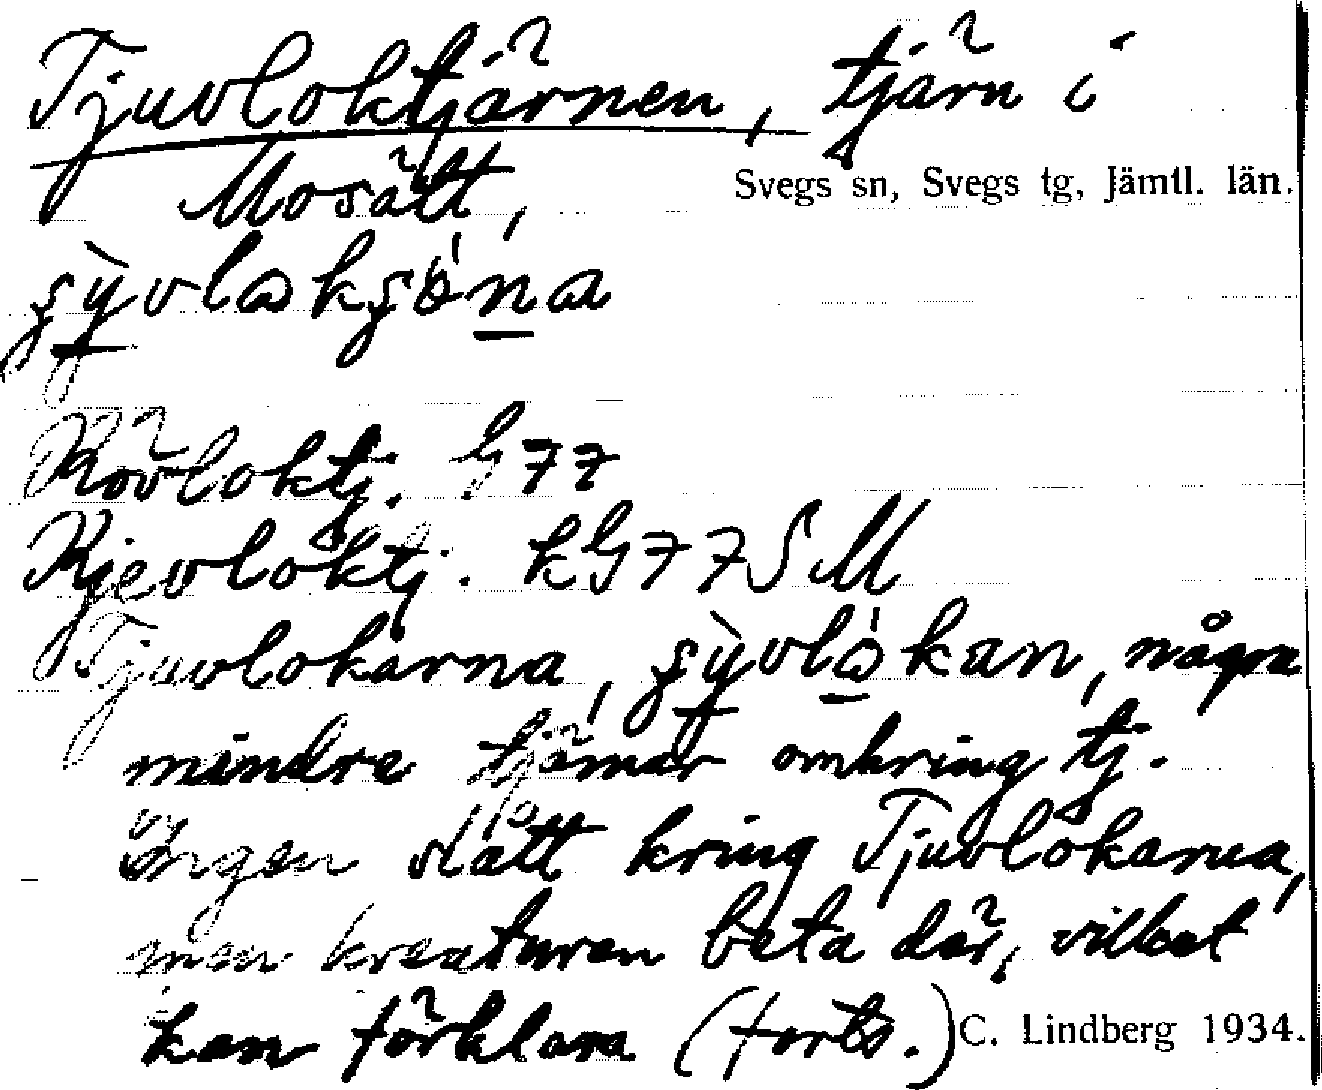 Tjuvloktjärnen, tjärn i
Mosätt,
Svegs sn, Svegs tg, Jämtl. län.
Kövloktj. G77
Kjevloktj. kG77SM
Tjuvlokarna, några
mindre tjärnar omkring tj.
Ingen slått kring Tjuvlokarna,
men kreaturen beta där, vilket
kan förklara (forts.)
C. Lindberg 1934.